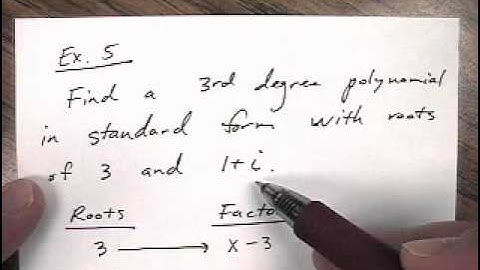 Ex. 5
Find a 3rd degree polynomial
in standard form with roots
of 3 and 1+i.
Roots
3 → x-3